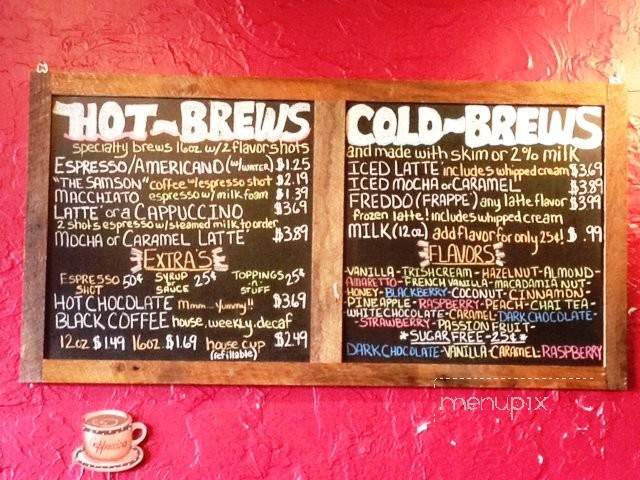 HOT~BREWS
specialty brews 16oz w/2 flavor shots
ESPRESSO/AMERICANO (w/WATER) $1.25
"THE SAMSON" coffee w/espresso shot $2.19
MACCHIATO espresso w/milk foam $1.39
LATTE' or a CAPPUCCINO $3.69
2 shots espresso w/steamed milk to order
MOCHA or CARAMEL LATTE $3.89
EXTRA'S
ESPRESSO SHOT 50¢ SYRUP or SAUCE 25¢ TOPPINGS -n- STUFF 25¢
HOT CHOCOLATE mmm...yummy!! $3.69
BLACK COFFEE house, weekly, decaf
12oz $1.49 16oz $1.69 house cup (refillable) $2.49
COLD~BREWS
and made with skim or 2% milk
ICED LATTE includes whipped cream $3.69
ICED MOCHA or CARAMEL $3.89
FREDDO (FRAPPE') any latte flavor $3.99
frozen latte! includes whipped cream
MILK (12oz) add flavor for only 25¢! $.99
FLAVORS
-VANILLA-IRISH CREAM-HAZELNUT-ALMOND-
AMARETTO-FRENCH VANILLA-MACADAMIA NUT-
HONEY-BLACKBERRY-COCONUT-CINNAMON-
PINEAPPLE-RASPBERRY-PEACH-CHAI TEA-
WHITE CHOCOLATE-CARAMEL-DARK CHOCOLATE-
-STRAWBERRY-PASSION FRUIT-
*SUGAR FREE-25¢*
DARK CHOCOLATE-VANILLA-CARAMEL-RASPBERRY
menupix